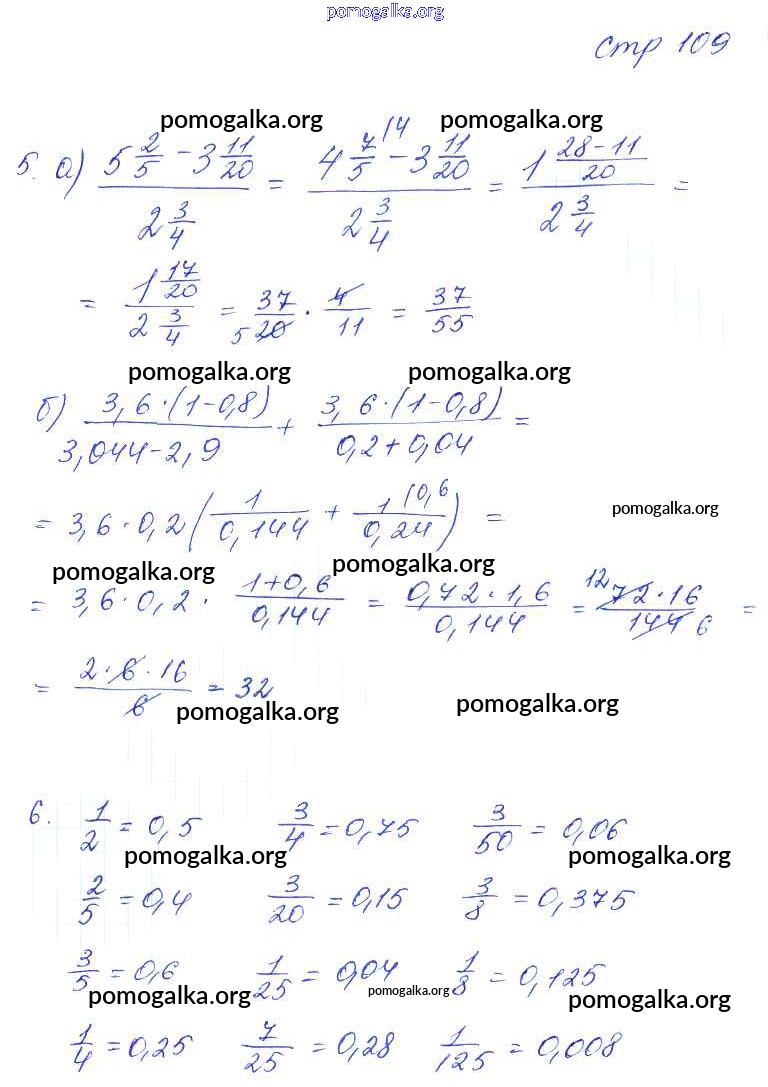 pomogalka.org
стр 109
pomogalka.org pomogalka.org
5. а) (5 2/5 - 3 11/20) / (2 3/4) = (4 7/5 /4 - 3 11/20) / (2 3/4) = (1 (28-11)/20) / (2 3/4) =
= (1 17/20) / (2 3/4) = 37/20 5 · 4/11 = 37/55
pomogalka.org pomogalka.org
б) 3,6·(1-0,8) / (3,044-2,9) + 3,6·(1-0,8) / (0,2+0,04) =
= 3,6·0,2 (1/0,144 + 1 /0,6 / 0,24) = pomogalka.org
pomogalka.org pomogalka.org
= 3,6·0,2· (1+0,6)/0,144 = (0,72·1,6)/0,144 = (12 72·16)/(144 6) =
= (2·6·16)/6 = 32
pomogalka.org pomogalka.org
6. 1/2 = 0,5 3/4 = 0,75 3/50 = 0,06
pomogalka.org pomogalka.org
2/5 = 0,4 3/20 = 0,15 3/8 = 0,375
3/5 = 0,6 1/25 = 0,04 1/8 = 0,125
pomogalka.org pomogalka.org pomogalka.org
1/4 = 0,25 7/25 = 0,28 1/125 = 0,008